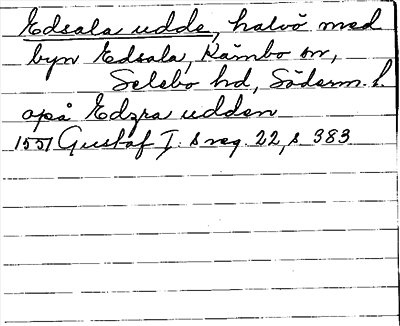 Edsala udde, halvö med
byn Edsala, Kärnbo sn,
Selebo hd, Söderm. l.
opå Edzra udden
1551 Gustaf I. s reg. 22, s 383